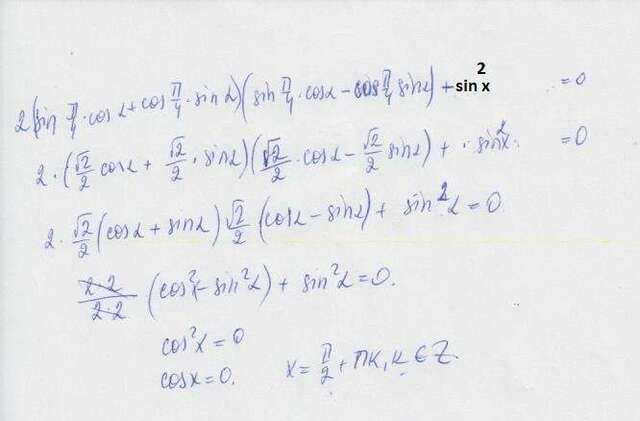 2(sin π/4 · cos α + cos π/4 · sin α)(sin π/4 · cos α − cos π/4 sin α) + sin² x = 0
2 · (√2/2 cos α + √2/2 · sin α)(√2/2 · cos α − √2/2 sin α) + · sin² x · = 0
2 · √2/2 (cos α + sin α) √2/2 (cos α − sin α) + sin² α = 0.
2·2/2·2 (cos² x − sin² α) + sin² α = 0.
cos² x = 0
cos x = 0. x = π/2 + πk, k ∈ Z.